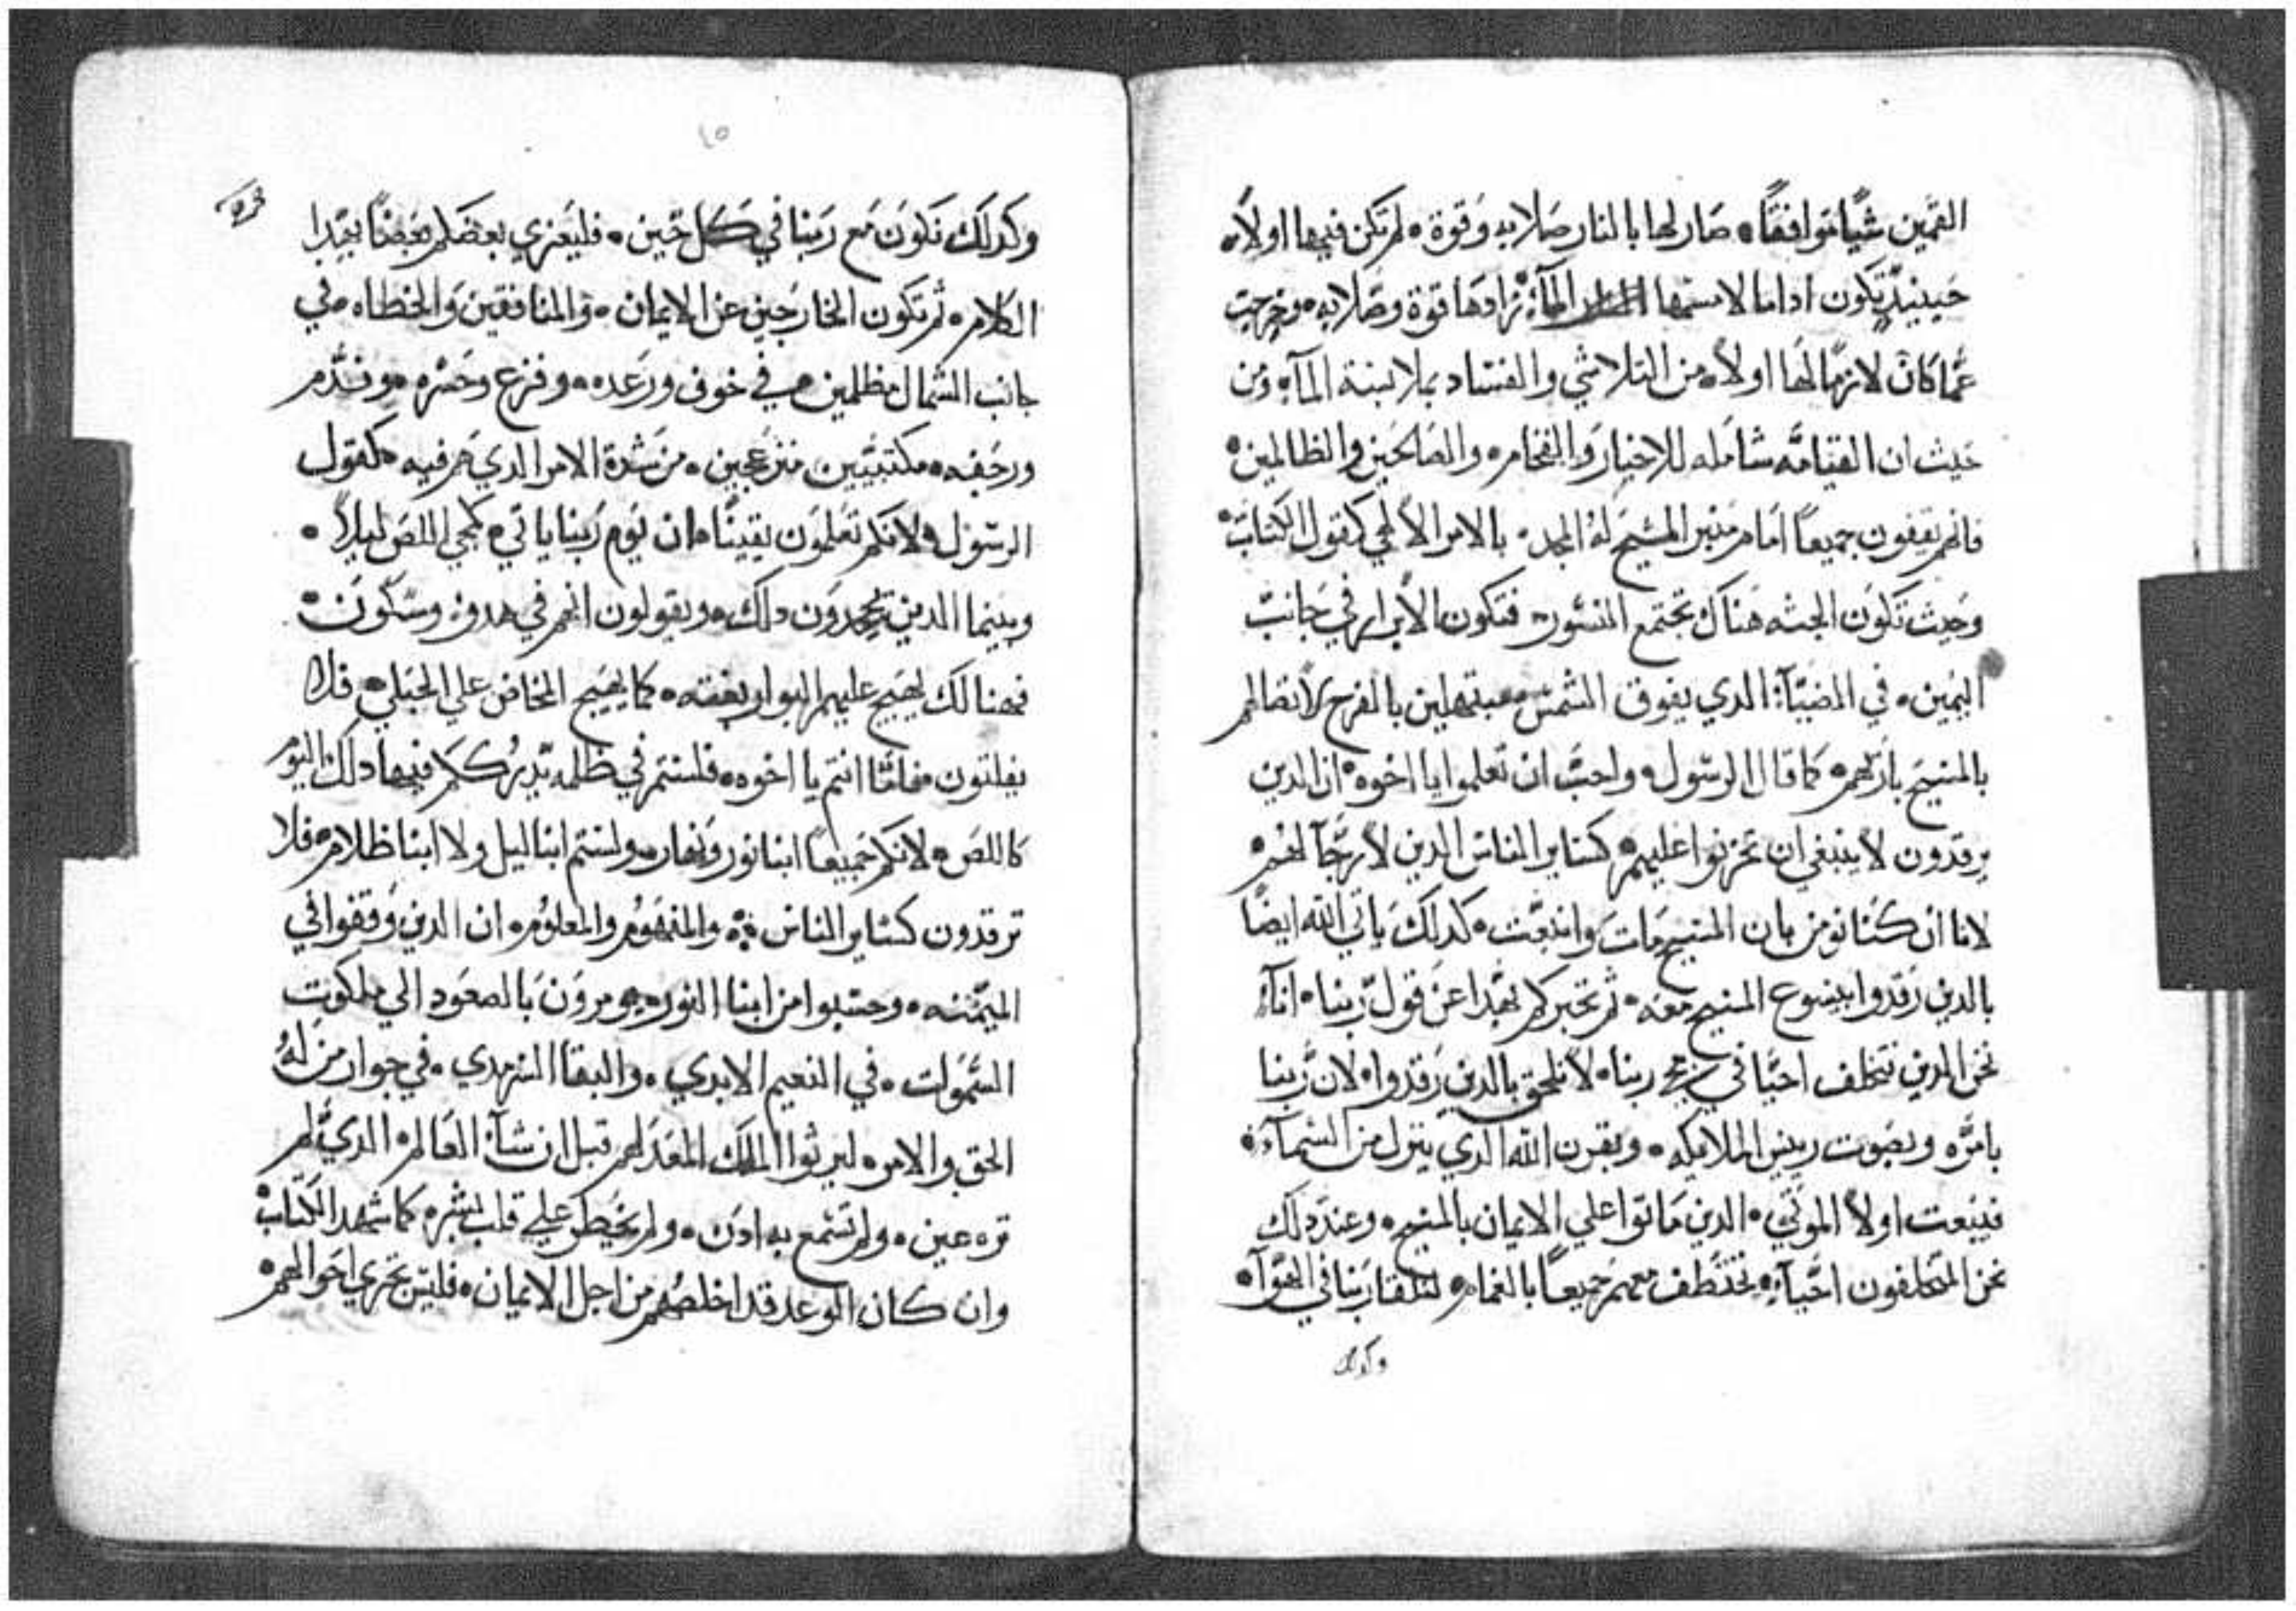 القمين شيًا موافقًا، صار لها بالنار صلابه وقوة، لم تكن فيها اولاً،
حينيذٍ تكون اداما لامسها المآءُ زادها قوة وصلابه، وخرجت
عمّا كان لازمًا لها اولاً، من التلاشي والفساد بملابسة المآءِ ومن
حيث ان القيامّه شامله للاخيار والفجار، والصالحين والظالمين،
فانهم يقفون جميعاً امام منبر المسيح لهُ المجد، بالامر الالهي كقول الكتاب،
وحيث تكون الجثه هناك تجتمع النسور، فتكون الابرار في جانب
اليمين، في الضيّآءِ الدي يفوق الشمس مبتهلين بالفرح لاتصالهم
بالمسيح بارّيهم، كما قال الرسول، واحبَّ ان تعلموا يا اخوه، ان الدين
يرقدون لا ينبغي ان تحزنوا عليهم، كساير الناس الدين لا رجّآ لهُم،
لانا ان كنا نومن بان المسيح مات وانبعت، كدلك ياتي الله ايضاً
بالدين رقدوا بيسوع المسيح معه، ثم نخبركم بهدا عن قول ربنا، انآءِ
نحن الدين نتخلف احيّا في مجي ربنا، لا نلحق بالدين رقدوا، لان رّبنا
بامرّه وبصوت رييس الملايكه، وبقرن الله الدي ينزل من السمآءِ،
فينبعت اولاً الموتي، الدين ماتوا علي الايمان بالمسيح، وعند دلك
نحن المتخلفون احيّآءِ، نختطف معهم جميعاً بالغمام، لنلقا ربنا في الهوّآ،
وكدلك
١٥
وكدلك نكون مع ربنا في كل حين، فليعزي بعضكم بعضاً بهدا
الكلام، ثم تكون الخارجين عن الايمان، والمنافقين والخطاه، في
جانب الشمال مظلمين، في خوف ورعده، وفزع وحسره، وندّم
ورجفه، مكتئبين منزعجين، من شدة الامر الدي هم فيه، كقول
الرسول، لانكم تعلمون يقيناً، ان يوم ربنا ياتي، كمجي اللص ليلاً،
وبينما الدين يجحدون دلك، ويقولون انهم في هدوٍ وسكون،
فهنالك يهيج عليهم البوار بغته، كما يهيج المخاض علي الحبلي، فلا
يفلتون، فامّا انتم يا اخوه، فلستم في ظلمه يدرككم فيها دلك اليوم
كاللص، لانكم جميعاً ابنا نور ونهار، ولستم ابنا ليل ولا ابنا ظلام، فلا
ترقدون كساير الناس، والمفهوم والمعلوم، ان الدين وقفوا في
الميمّنه، وحسبوا من ابنا النور، يومرون بالصعود الي ملكوت
السّموات، في النعيم الابدي، والبقا السرمدي، في جوار من لهُ
الحق والامر، ليرثوا الملك المعد لهم قبل ان شآءِ العالم، الدي لم
تره عين، ولم تسمع به ادن، ولم يخطر علي قلب بشر، كما شهد الكتاب،
وان كان الوعد قد اخلصهُم من اجل الايمان، فليس تجري احوالهم،